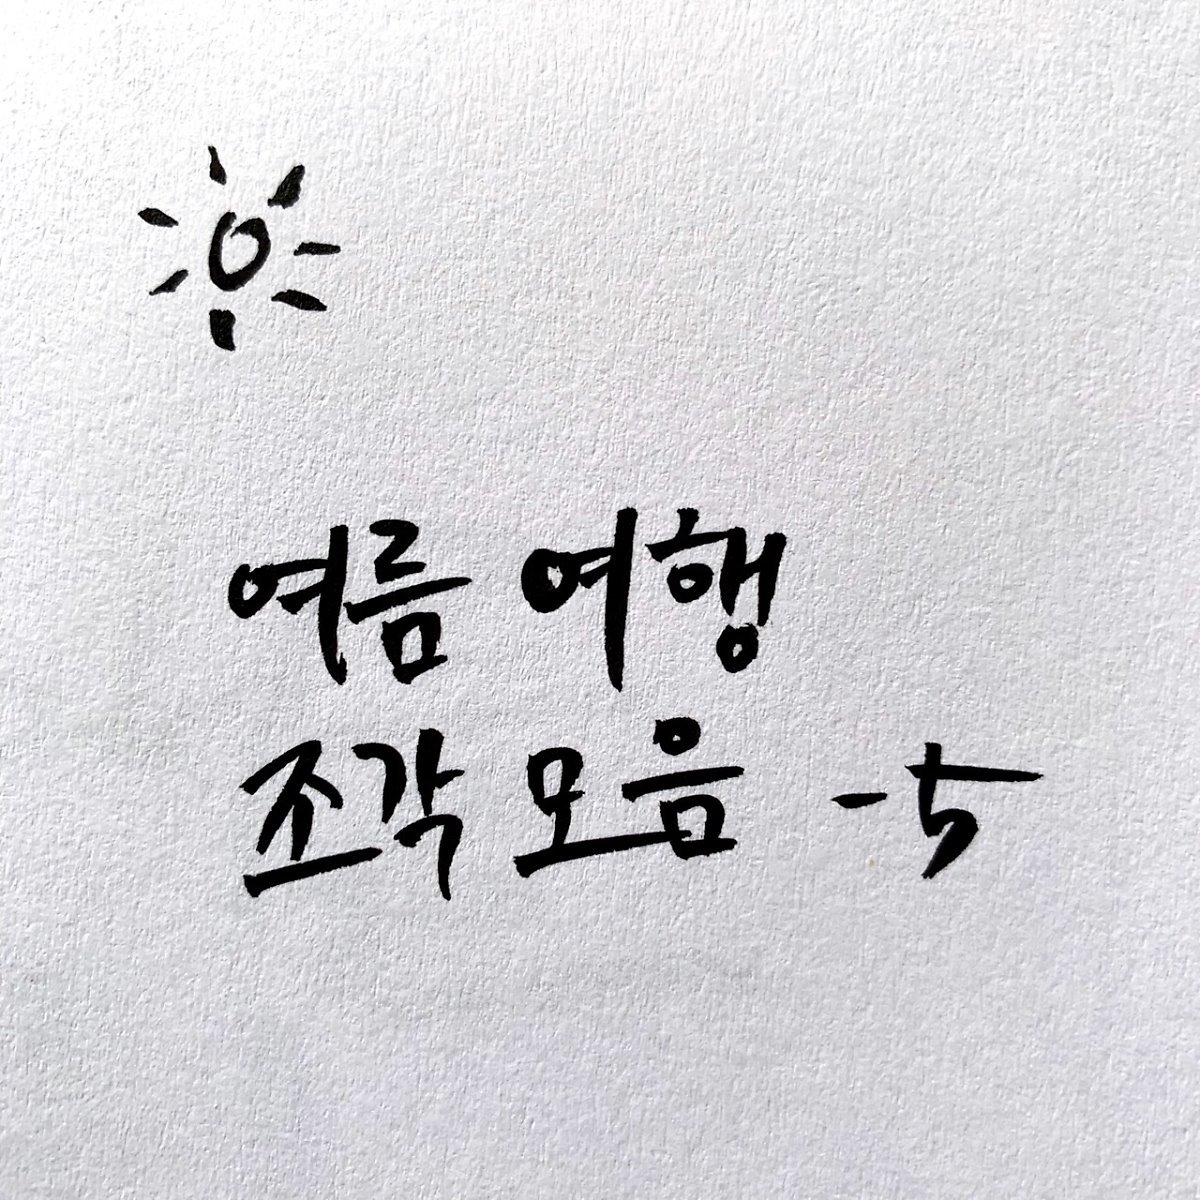 여름 여행
조각 모음 -5